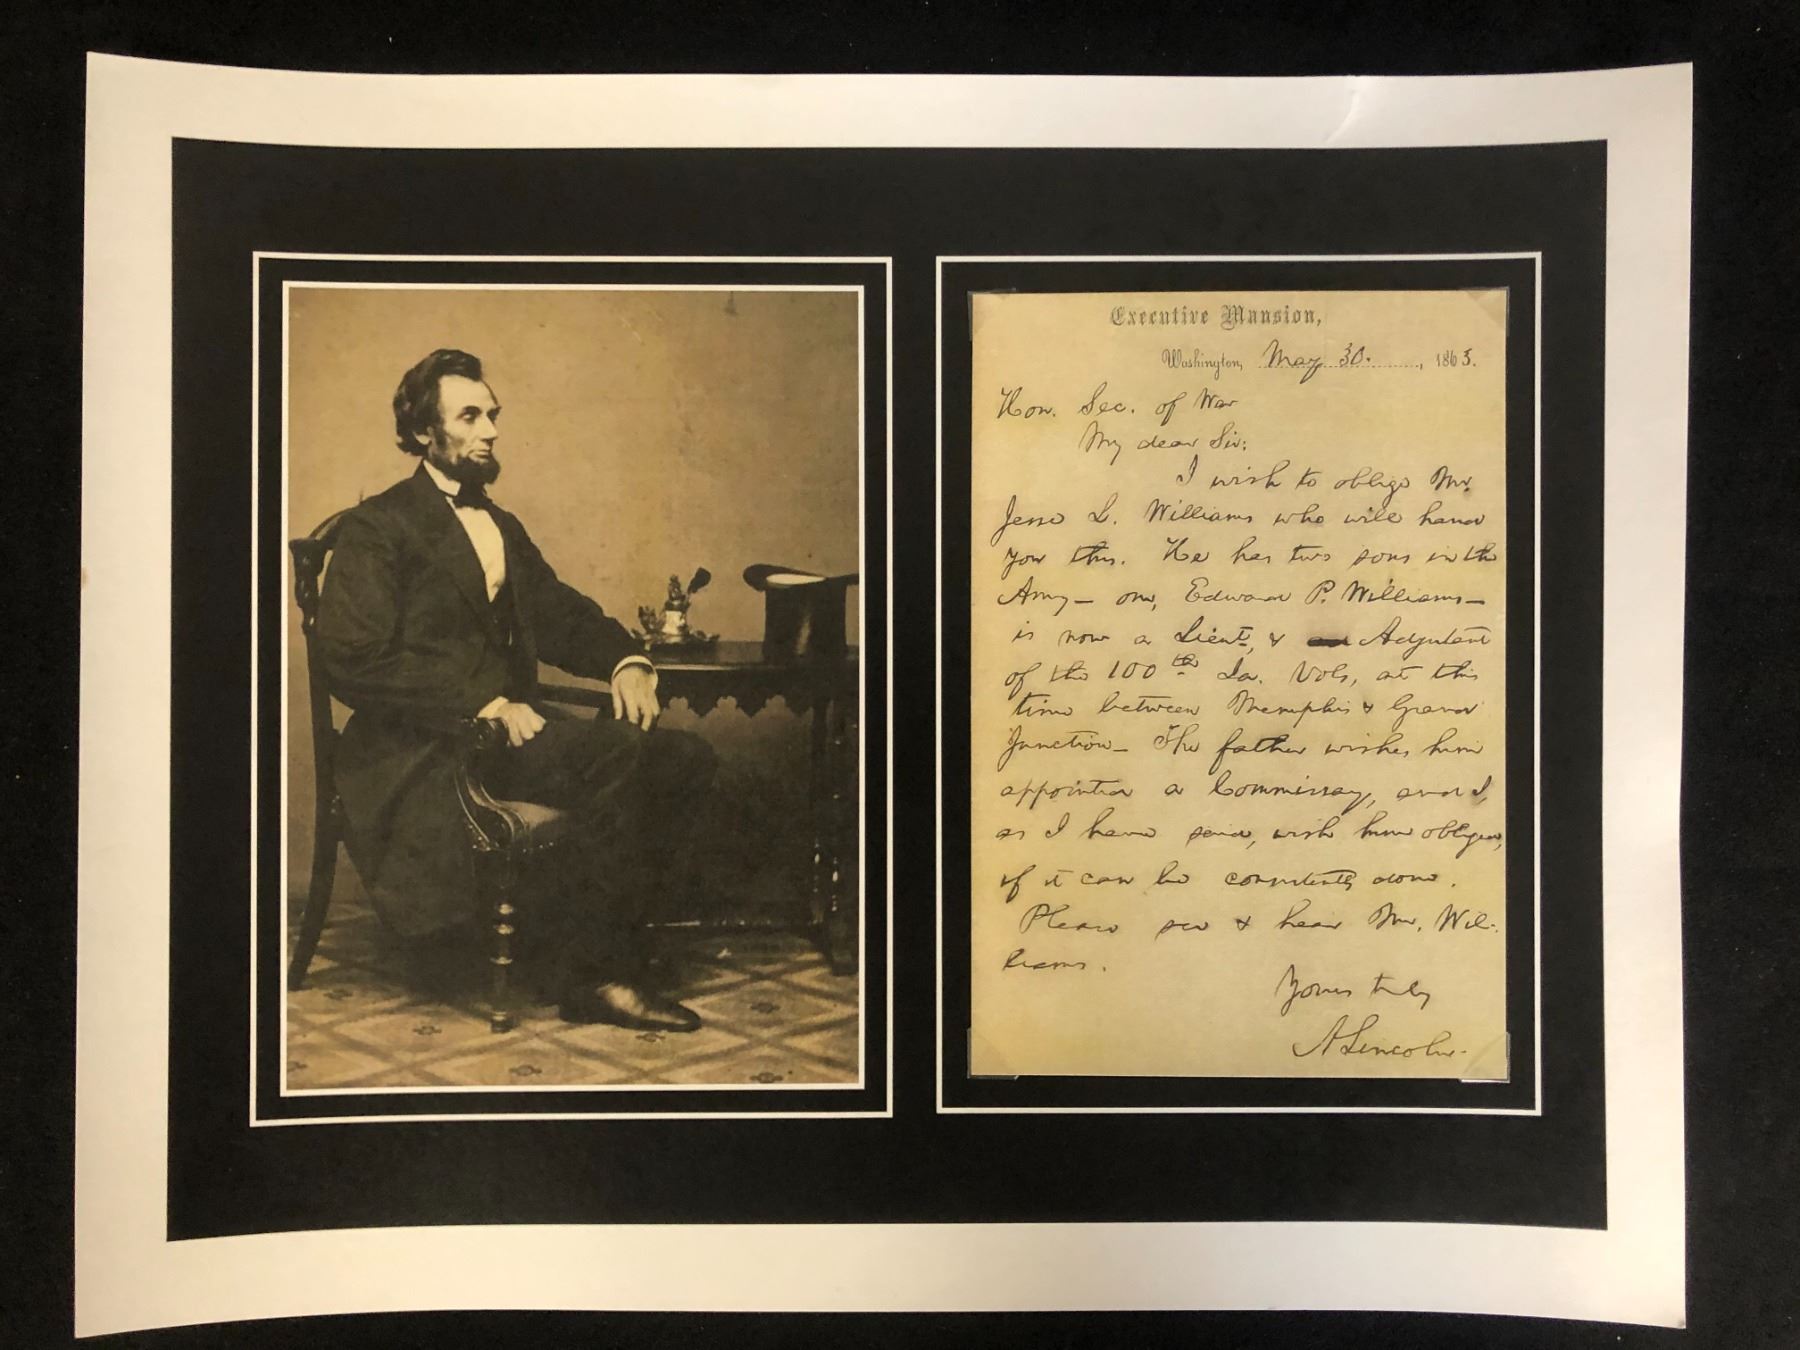 Executive Mansion,
Washington, May 30. , 1863.
Hon. Sec. of War
My dear Sir:
I wish to oblige Mr.
Jesse L. Williams who will hand
you this. He has two sons in the
Army— one, Edward P. Williams—
is now a Lieut, & Adjutant
of the 100th Ia. Vols, at this
time between Memphis & Grand
Junction— The father wishes him
appointed a Commissary, and I,
as I have said, wish him obliged,
if it can be consistently done.
Please see & hear Mr. Wil-
liams.
Yours truly
A Lincoln.